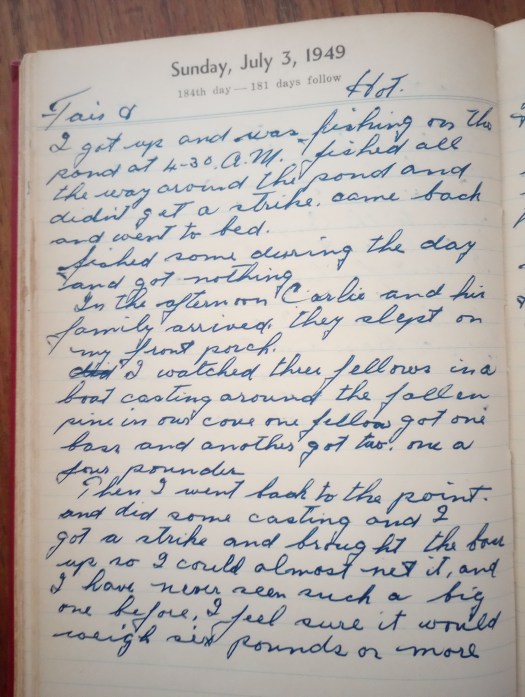 Sunday, July 3, 1949
184th day — 181 days follow
Fair & Hot.
I got up and was fishing on the
pond at 4-30. A.M. fished all
the way around the pond and
didn't get a strike. came back
and went to bed.
fished some during the day
and got nothing
In the afternoon Carlie and his
family arrived, they slept on
my front porch.
did I watched three fellows in a
boat casting around the fallen
pine in our cove one fellow got one
bass and another got two. one a
four pounder
Then I went back to the point.
and did some casting and I
got a strike and brought the bass
up so I could almost net it, and
I have never seen such a big
one before, I feel sure it would
weigh six pounds or more